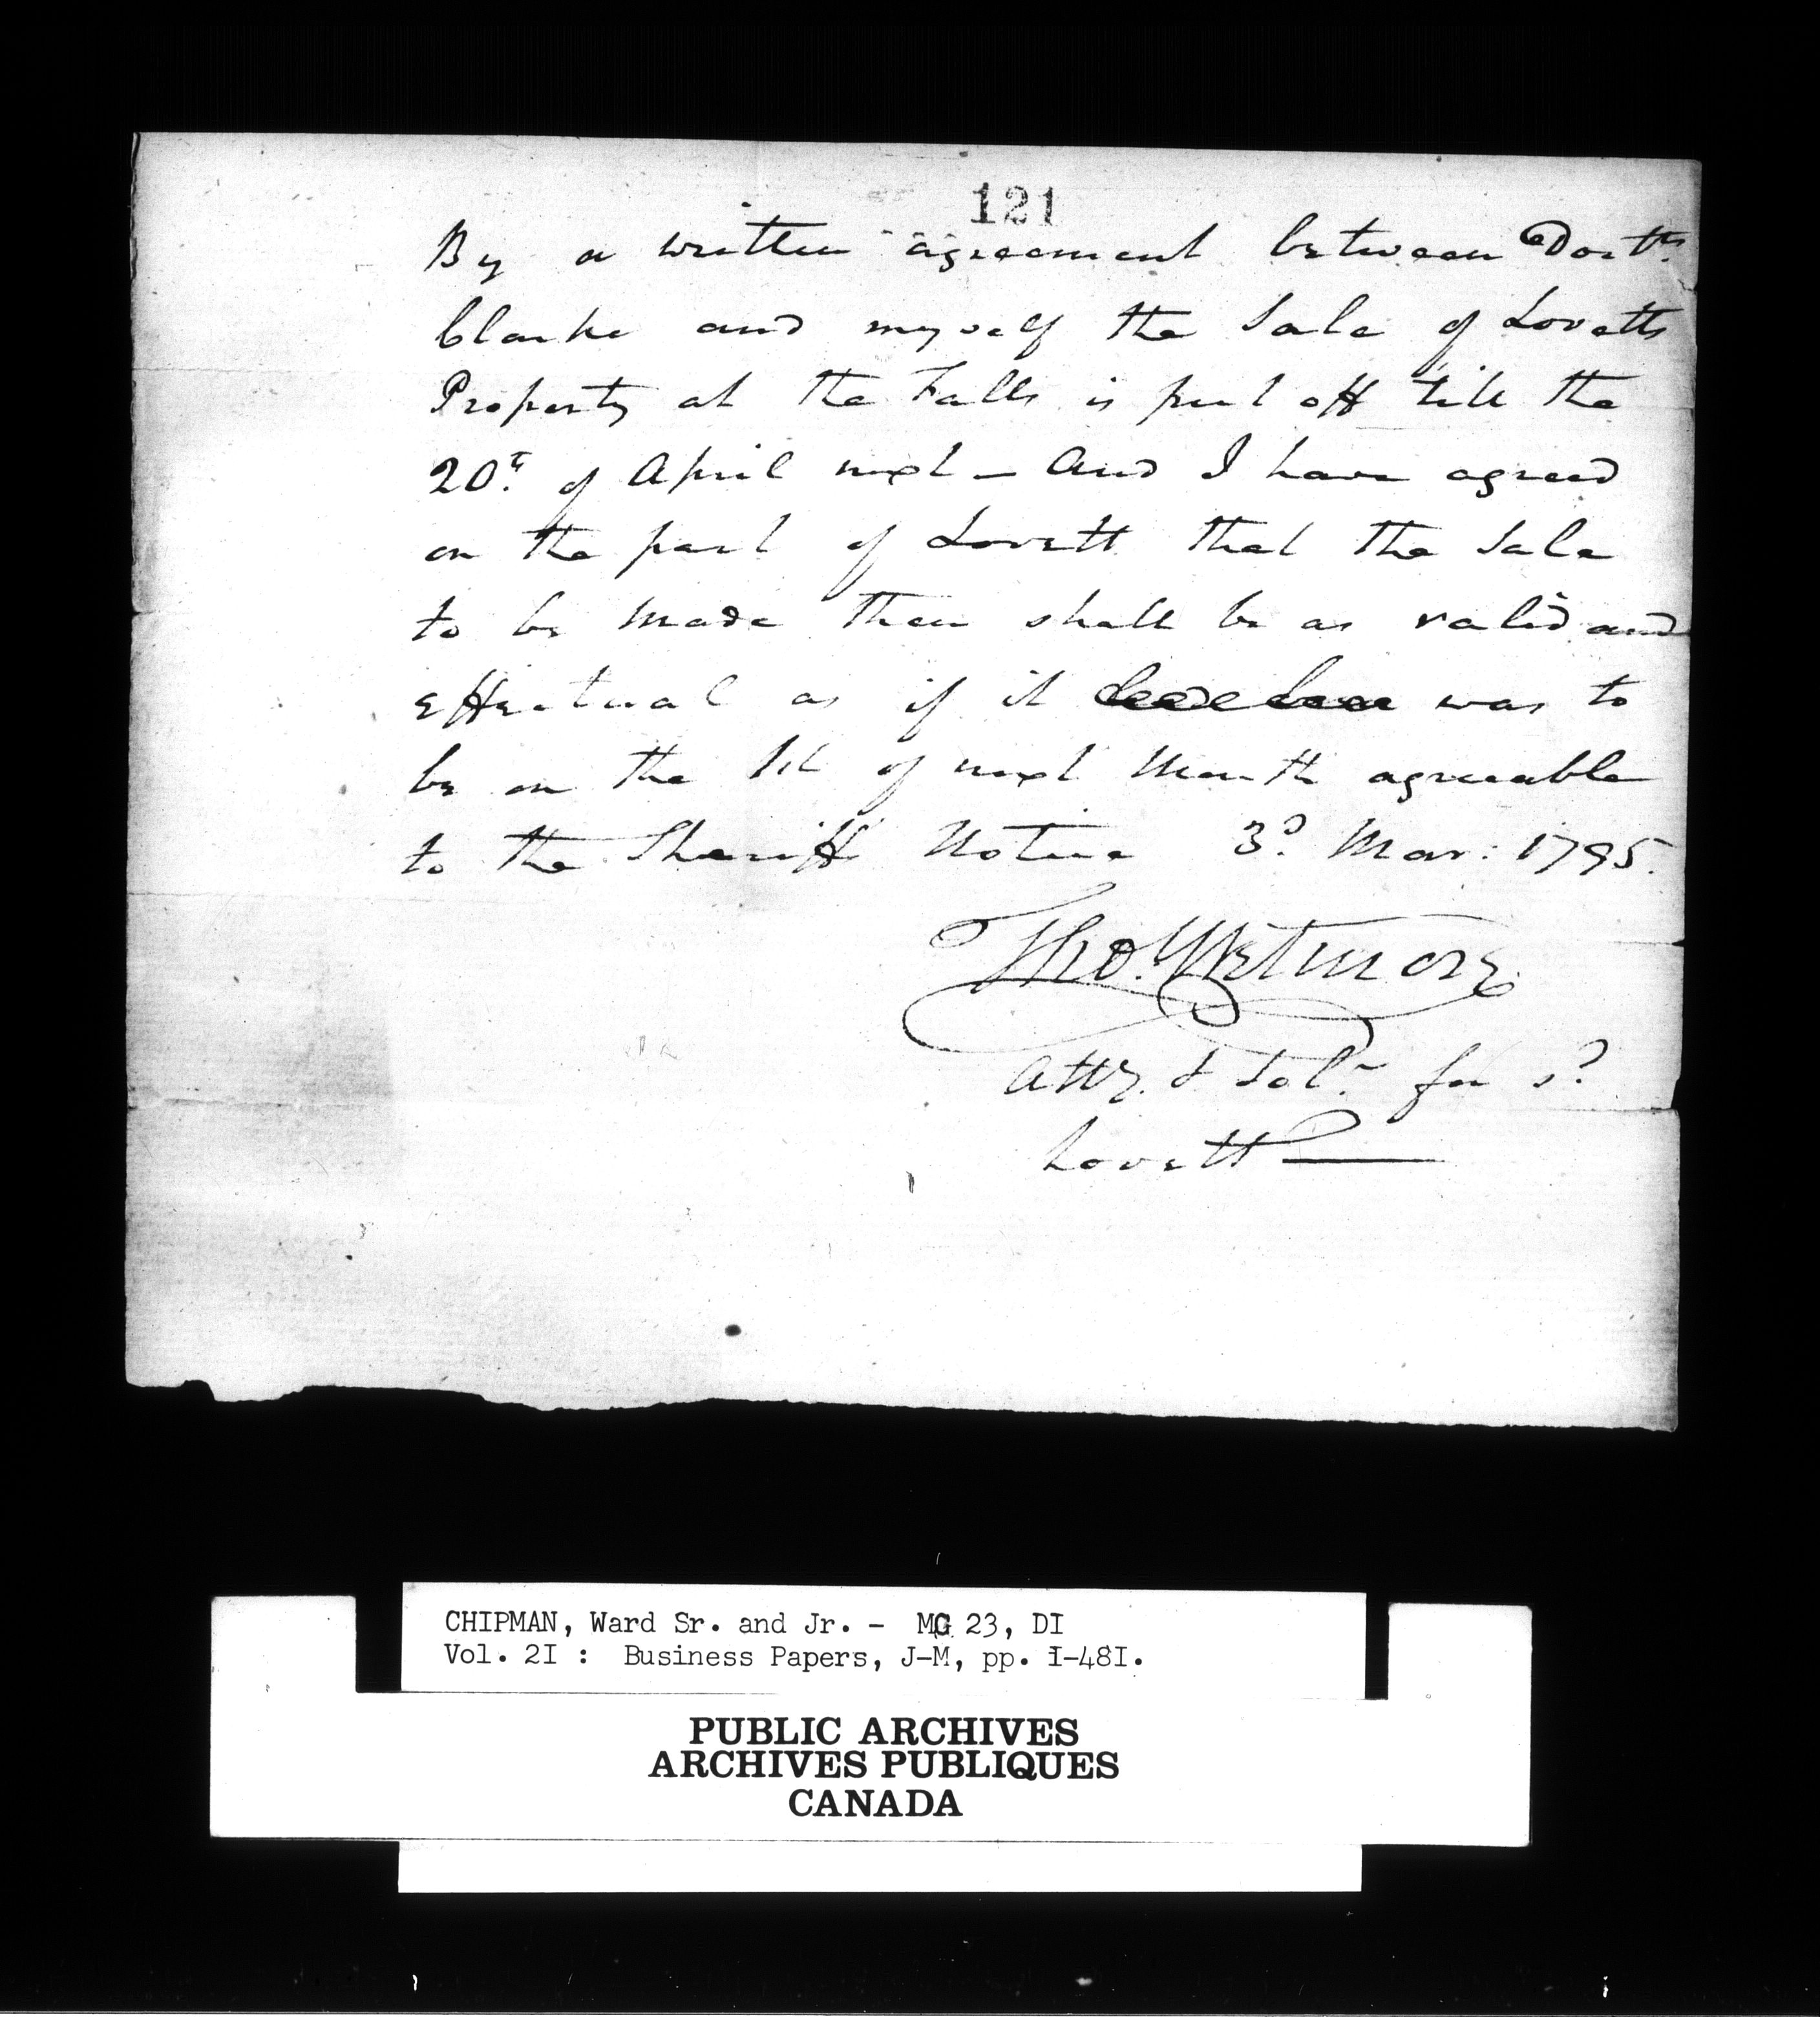 121
By a written agreement between Doct.r
Clarke and myself the Sale of Lovetts
Property at the Falls is put off till the
20.t of April next – And I have agreed
on the part of Lovett that the Sale
to be made then shall be as valid and
effectual as if it was to
be on the 1st of next Month agreeable
to the Sheriffs Notice 3.d Mar: 1795.
Tho. Wetmore
Atty. & Sol.r for s.d
Lovett
CHIPMAN, Ward Sr. and Jr. - MG 23, DI
Vol. 2I : Business Papers, J-M, pp. I-48I.
PUBLIC ARCHIVES
ARCHIVES PUBLIQUES
CANADA